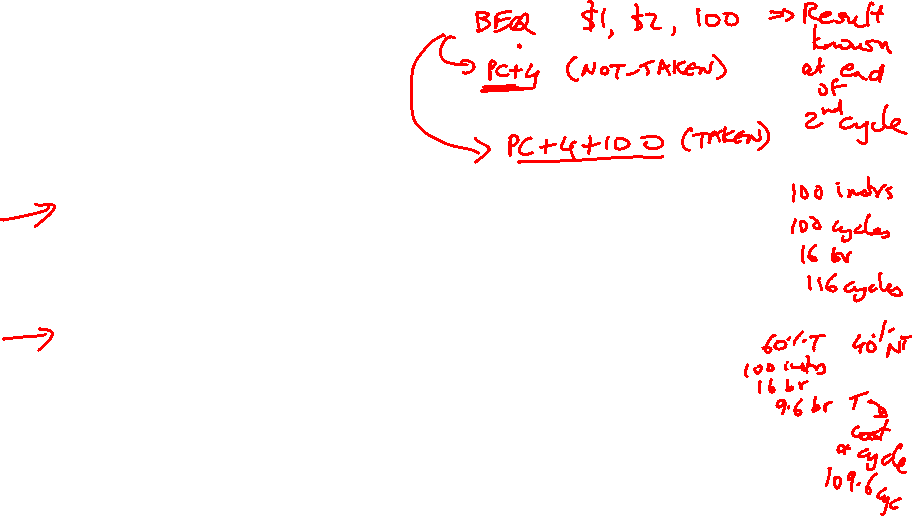 BEQ $1, $2, 100 => Result
known
at end
of
2nd cycle
PC+4 (NOT-TAKEN)
PC+4+100 (TAKEN)
100 instrs
100 cycles
16 br
116 cycles
60% T 40% NT
100 instrs
16 br
9.6 br T
cost
a cycle
109.6 cyc